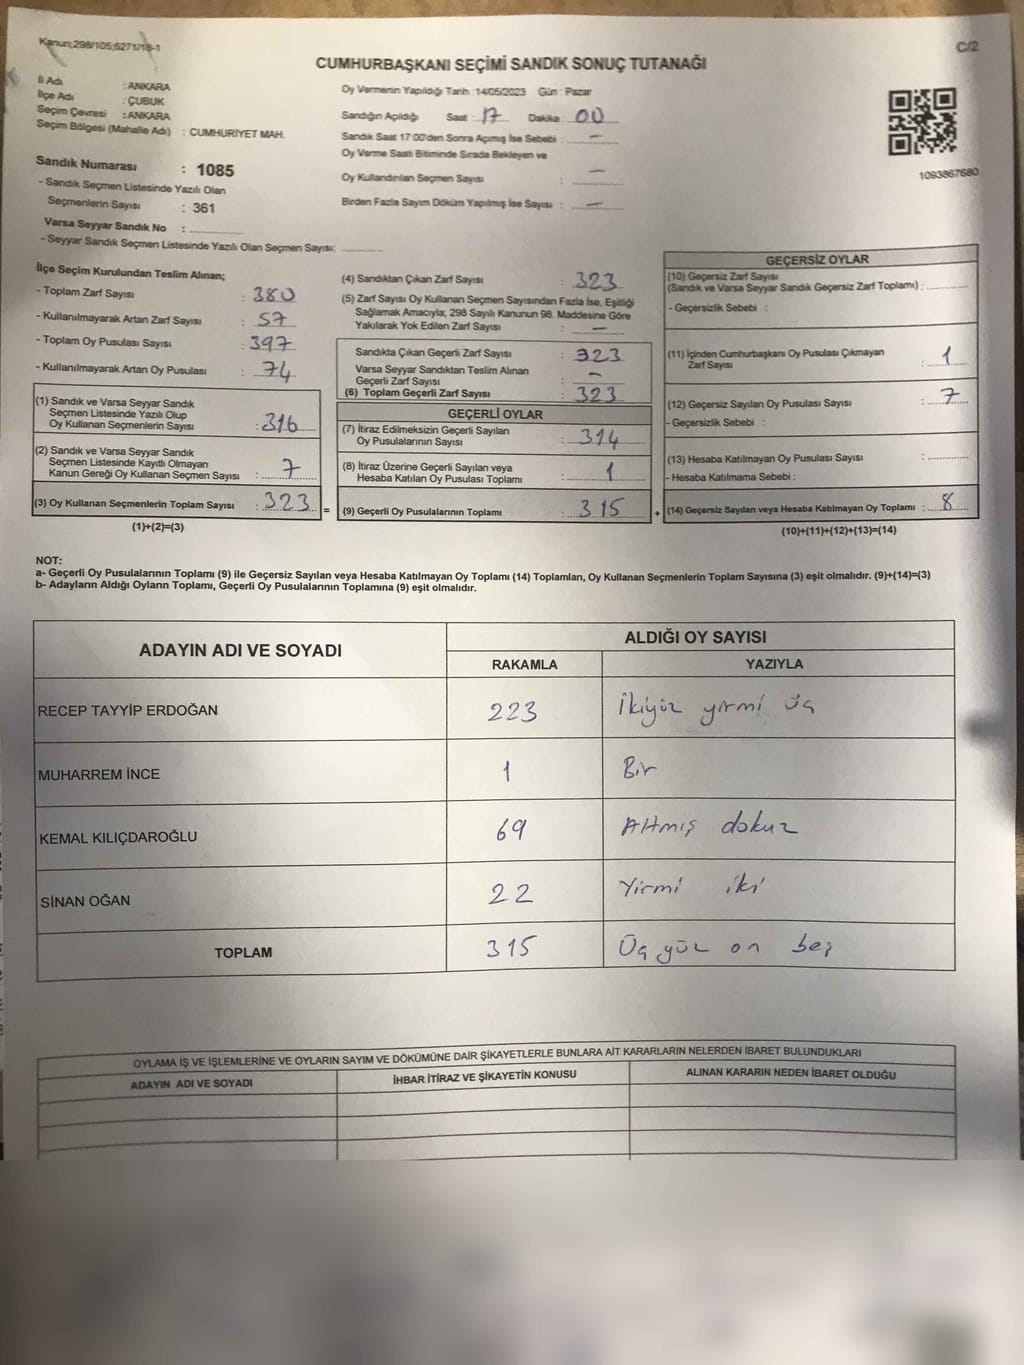 Kanun;298/105;6271/18-1
C/2
CUMHURBAŞKANI SEÇİMİ SANDIK SONUÇ TUTANAĞI
İl Adı : ANKARA
İlçe Adı : ÇUBUK
Seçim Çevresi : ANKARA
Seçim Bölgesi (Mahalle Adı) : CUMHURİYET MAH.
Sandık Numarası : 1085
- Sandık Seçmen Listesinde Yazılı Olan
Seçmenlerin Sayısı : 361
Varsa Seyyar Sandık No : ............
- Seyyar Sandık Seçmen Listesinde Yazılı Olan Seçmen Sayısı: ............
Oy Vermenin Yapıldığı Tarih : 14/05/2023 Gün : Pazar
Sandığın Açıldığı Saat : 17 Dakika : 00
Sandık Saat 17:00'den Sonra Açımış İse Sebebi : —
Oy Verme Saati Bitiminde Sırada Bekleyen ve
Oy Kullandırılan Seçmen Sayısı : —
Birden Fazla Sayım Döküm Yapılmış İse Sayısı : —
1093867680
İlçe Seçim Kurulundan Teslim Alınan;
- Toplam Zarf Sayısı : 380
- Kullanılmayarak Artan Zarf Sayısı : 57
- Toplam Oy Pusulası Sayısı : 397
- Kullanılmayarak Artan Oy Pusulası : 74
(1) Sandık ve Varsa Seyyar Sandık
Seçmen Listesinde Yazılı Olup
Oy Kullanan Seçmenlerin Sayısı : 316
(2) Sandık ve Varsa Seyyar Sandık
Seçmen Listesinde Kayıtlı Olmayan
Kanun Gereği Oy Kullanan Seçmen Sayısı : 7
(3) Oy Kullanan Seçmenlerin Toplam Sayısı : 323
(1)+(2)=(3)
(4) Sandıktan Çıkan Zarf Sayısı : 323
(5) Zarf Sayısı Oy Kullanan Seçmen Sayısından Fazla İse, Eşitliği
Sağlamak Amacıyla; 298 Sayılı Kanunun 98. Maddesine Göre
Yakılarak Yok Edilen Zarf Sayısı : —
Sandıkta Çıkan Geçerli Zarf Sayısı : 323
Varsa Seyyar Sandıktan Teslim Alınan
Geçerli Zarf Sayısı : —
(6) Toplam Geçerli Zarf Sayısı : 323
GEÇERLİ OYLAR
(7) İtiraz Edilmeksizin Geçerli Sayılan
Oy Pusulalarının Sayısı : 314
(8) İtiraz Üzerine Geçerli Sayılan veya
Hesaba Katılan Oy Pusulası Toplamı : 1
= (9) Geçerli Oy Pusulalarının Toplamı : 315
GEÇERSİZ OYLAR
(10) Geçersiz Zarf Sayısı
(Sandık ve Varsa Seyyar Sandık Geçersiz Zarf Toplamı) : ............
- Geçersizlik Sebebi :
(11) İçinden Cumhurbaşkanı Oy Pusulası Çıkmayan
Zarf Sayısı : 1
(12) Geçersiz Sayılan Oy Pusulası Sayısı : 7
- Geçersizlik Sebebi :
(13) Hesaba Katılmayan Oy Pusulası Sayısı : ............
- Hesaba Katılmama Sebebi :
+ (14) Geçersiz Sayılan veya Hesaba Katılmayan Oy Toplamı : 8
(10)+(11)+(12)+(13)=(14)
NOT:
a- Geçerli Oy Pusulalarının Toplamı (9) ile Geçersiz Sayılan veya Hesaba Katılmayan Oy Toplamı (14) Toplamları, Oy Kullanan Seçmenlerin Toplam Sayısına (3) eşit olmalıdır. (9)+(14)=(3)
b- Adayların Aldığı Oyların Toplamı, Geçerli Oy Pusulalarının Toplamına (9) eşit olmalıdır.
ADAYIN ADI VE SOYADI
ALDIĞI OY SAYISI
RAKAMLA YAZIYLA
RECEP TAYYİP ERDOĞAN 223 İkiyüz yirmi üç
MUHARREM İNCE 1 Bir
KEMAL KILIÇDAROĞLU 69 Altmış dokuz
SİNAN OĞAN 22 Yirmi iki
TOPLAM 315 Üç yüz on beş
OYLAMA İŞ VE İŞLEMLERİNE VE OYLARIN SAYIM VE DÖKÜMÜNE DAİR ŞİKAYETLERLE BUNLARA AİT KARARLARIN NELERDEN İBARET BULUNDUKLARI
ADAYIN ADI VE SOYADI İHBAR İTİRAZ VE ŞİKAYETİN KONUSU ALINAN KARARIN NEDEN İBARET OLDUĞU